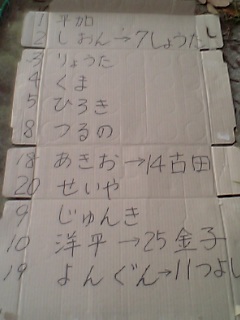 1 平加
2 しおん→7しょうた
3 りょうた
4 くま
5 ひろき
8 つるの
18 あきお→14古田
20 せいや
9 じゅんき
10 洋平→25金子
19 よんぐん→11つよし